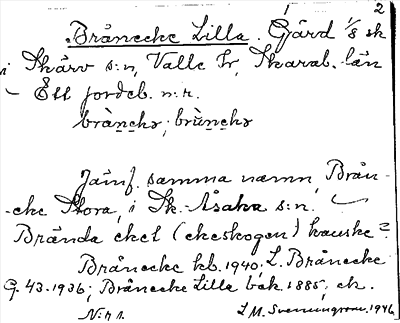 2
Brånecke Lilla. Gård 1/8 sk
i Skärv s:n, Valle hr, Skarab. län
Ett jordeb. n:r.
brànçhə, brùnçhə
Jämf. samma namn, Brån-
-eke Stora, i Sk.-Åsaka s:n.
Brända ekel (ekeskogen) kanske =
Brånecke kb. 1940; L. Brånecke
G. 43. 1936; Brånecke Lilla bek. 1885, ek.
N:r 1. L M. Svenungsson, 1946